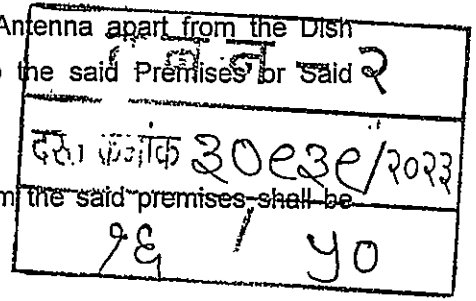 Antenna apart from the Dish
न २
the said Premises or Said
दस्त क्रमांक ३०९३९/२०२३
m the said premises shall be
१६ / ५०